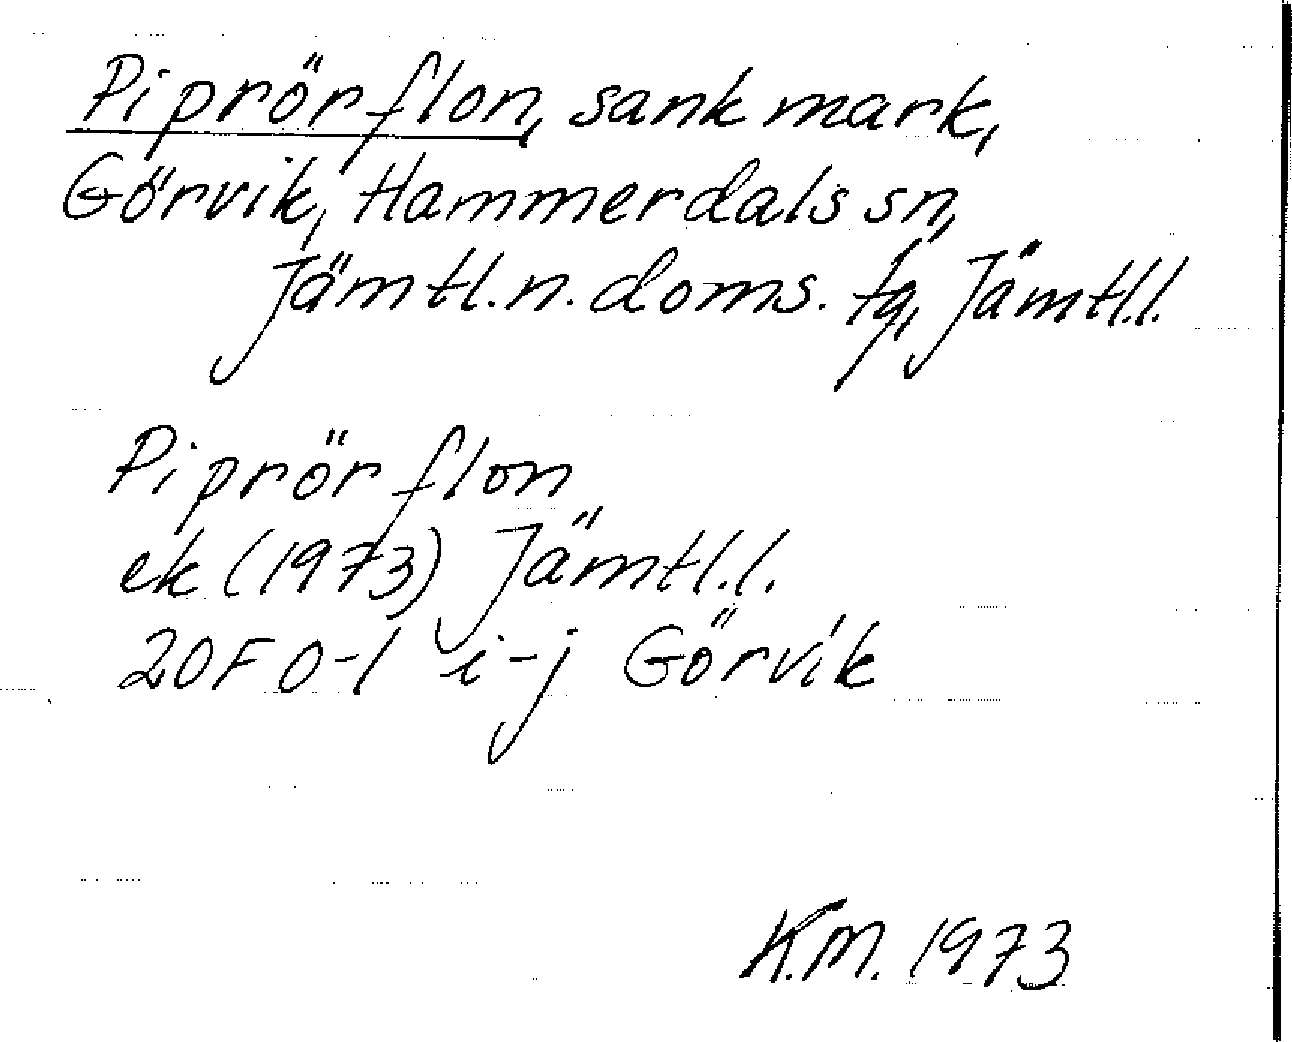 Piprörflon, sank mark,
Görvik, Hammerdals sn,
Jämtl.n.doms. tg, Jämtl.l.
Piprörflon
ek (1973) Jämtl.l.
20F 0-1 i-j Görvik
K.M. 1973